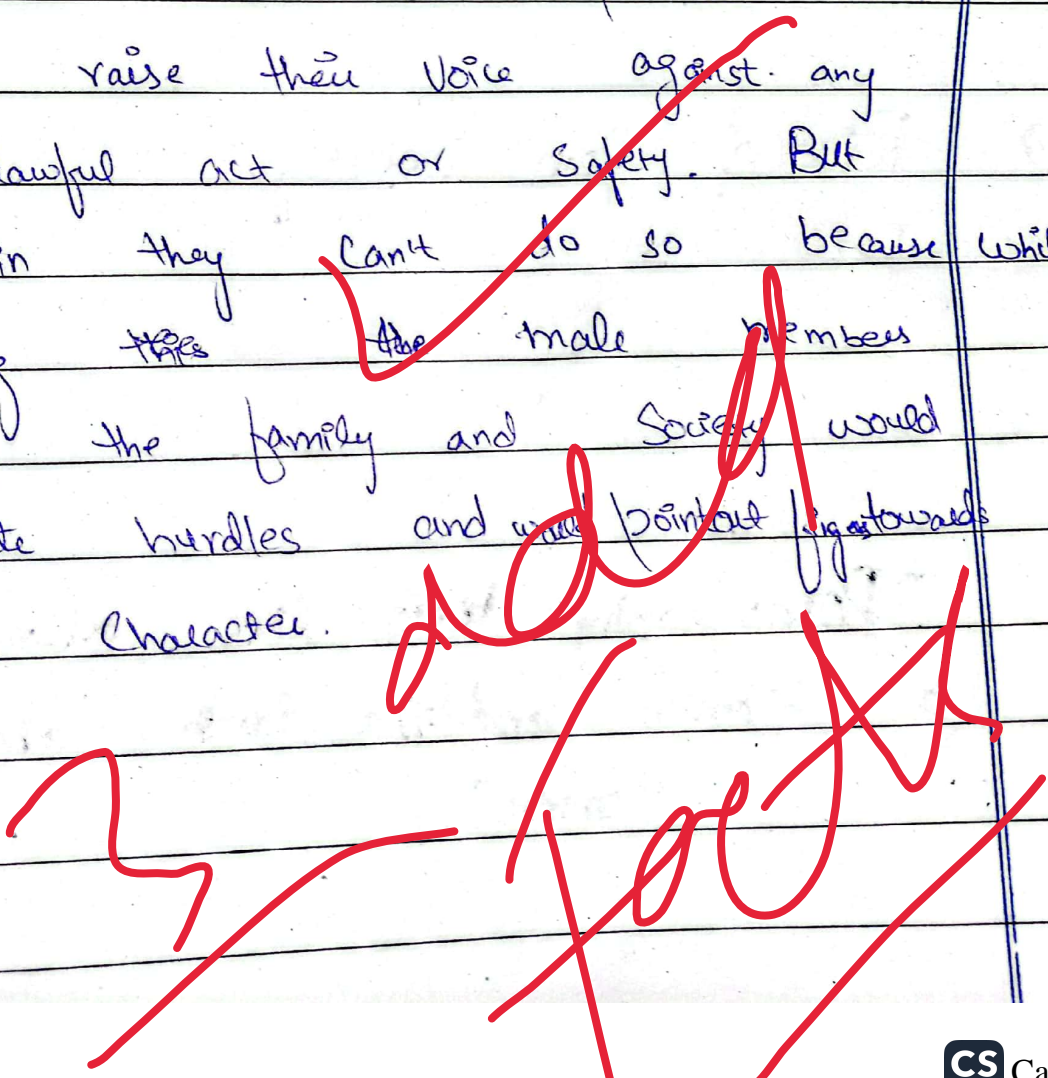 raise their voice against any
lawful act or safety. But
in they can't do so because whi
the male members
the family and Society would
te hurdles and would pointout figestowards
Character.
add
Facts
3
CS Ca